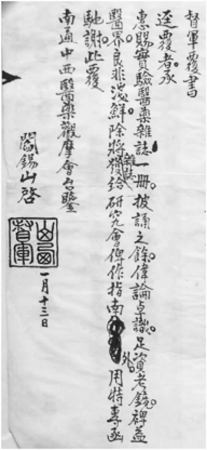 督軍覆書
逕覆者承
惠賜實驗醫藥雜誌一冊披誦之餘偉論卓識足資考鏡裨益
醫界良非淺鮮除將雜誌發給研究會俾作指南外用特專函
馳謝此覆
南通中西醫藥觀摩會台鑒
閻錫山啓
山西督軍
一月十三日